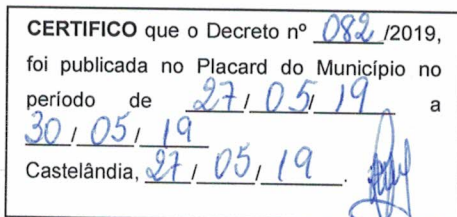 CERTIFICO que o Decreto nº 082 /2019,
foi publicada no Placard do Município no
período de 27 / 05 / 19 a
30 / 05 / 19
Castelândia, 27 / 05 / 19 .